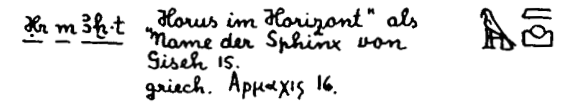 Ḥr m ꜣḫ·t „Horus im Horizont" als
Name der Sphinx von
Giseh 15.
griech. Αρμαχις 16.